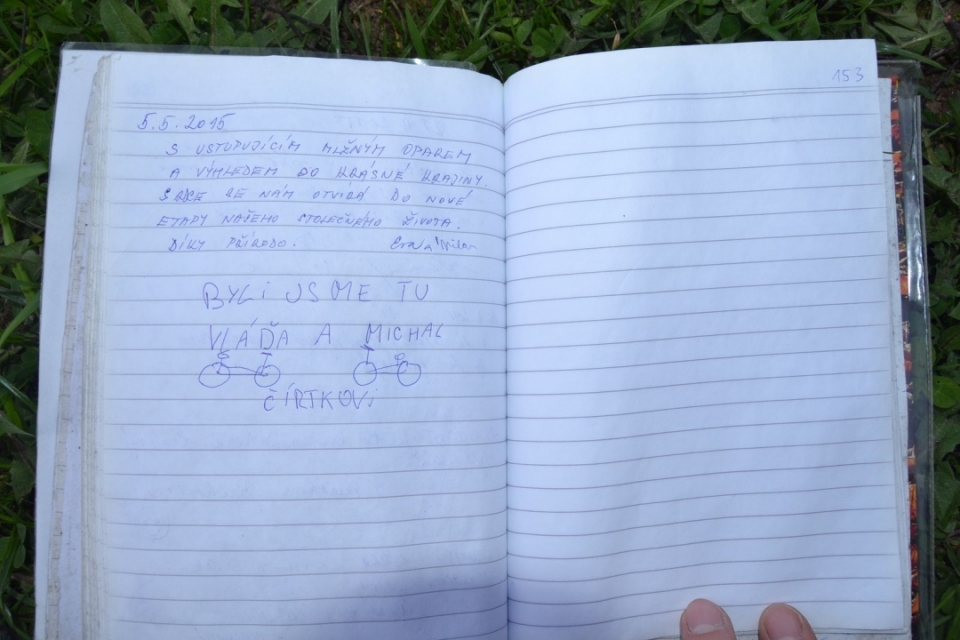 5.5.2015
S USTUPUJÍCÍM MLŽNÝM OPAREM
A VÝHLEDEM DO KRÁSNÉ KRAJINY.
SRDCE SE NÁM OTVÍRÁ DO NOVÉ
ETAPY NAŠEHO SPOLEČNÉHO ŽIVOTA.
DÍKY PŘÍRODO.
BYLI JSME TU
VLÁĎA A MICHAL
ČÍRTKOVI
153